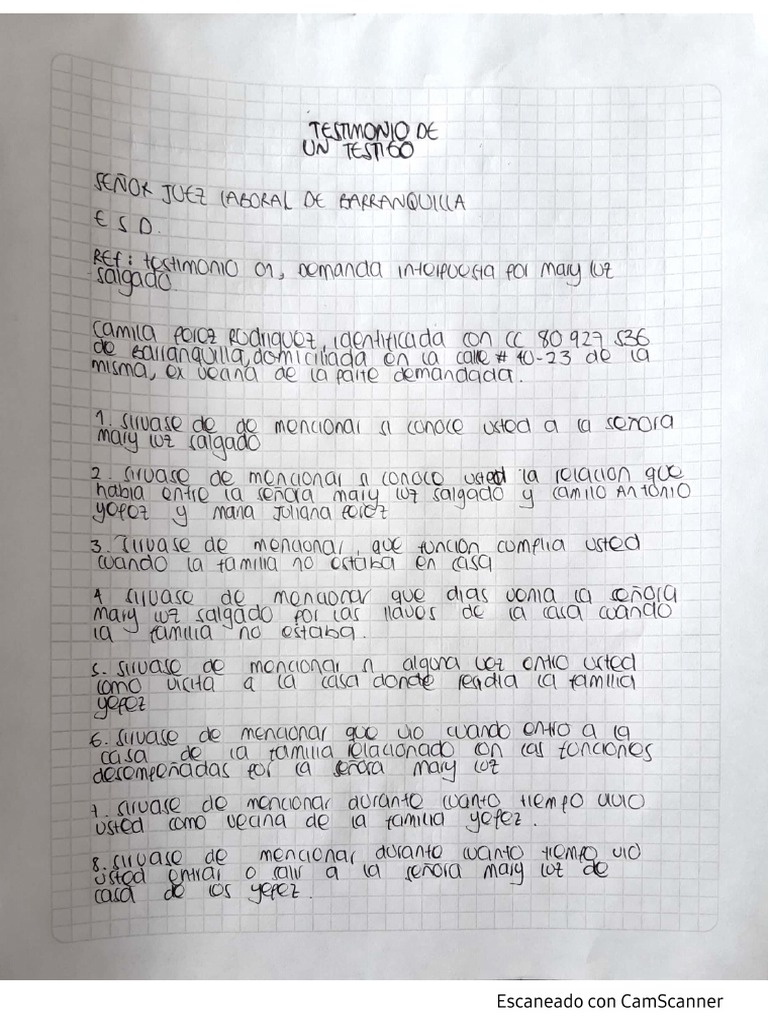 TESTIMONIO DE
UN TESTIGO
SEÑOR JUEZ LABORAL DE BARRANQUILLA
E S D.
REf: testimonio 01, Demanda interpuesta por mary luz
salgado
Camila Perez Rodriguez, identificada con CC 80 927 536
de Barranquilla, domiciliada en la calle # 40-23 de la
misma, ex vecina de la parte demandada.
1. sirvase de de mencionar si conoce usted a la señora
mary luz salgado
2. sirvase de mencionar si conoce usted la relacion que
habia entre la señora mary luz salgado y camilo Antonio
yepez y maria Juliana Perez
3. Sirvase de mencionar, que función cumplia usted
cuando la familia no estaba en casa
4 sirvase de mencionar que dias venia la señora
mary luz salgado por las llaves de la casa cuando
la familia no estaba.
5. sirvase de mencionar si alguna vez entro usted
como visita a la casa donde residia la familia
yepez
6. sirvase de mencionar que vio cuando entro a la
casa de la familia relacionado con las funciones
desempeñadas por la señora mary luz
7. sirvase de mencionar durante cuanto tiempo vivio
usted como vecina de la familia yepez.
8. sirvase de mencionar durante cuanto tiempo vio
usted entrar o salir a la señora mary luz de
casa de los yepez.
Escaneado con CamScanner